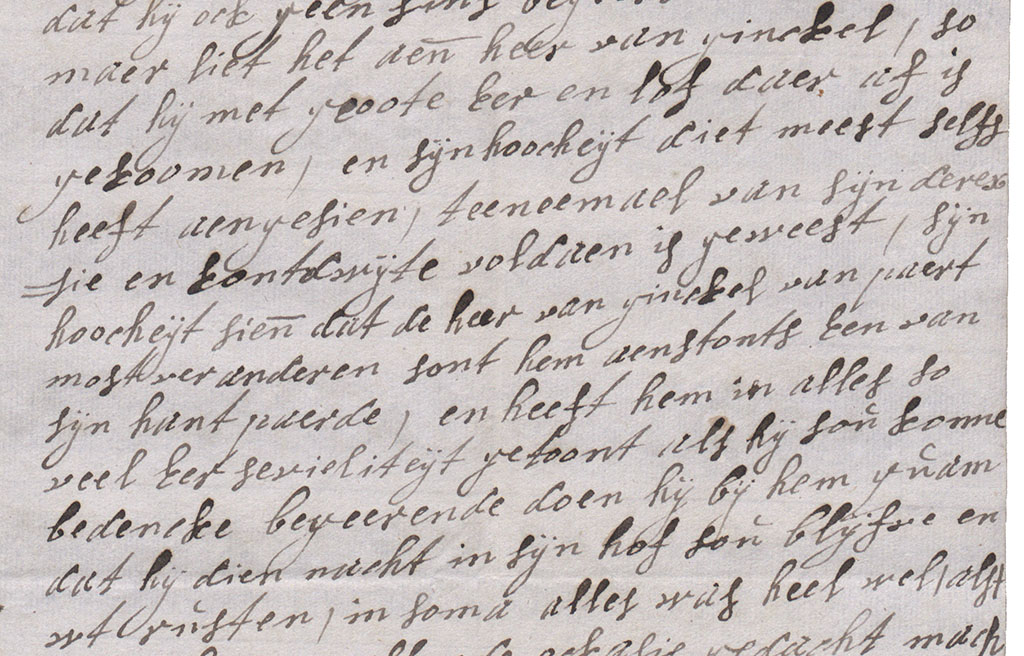 dat hij ock geen sins
maer liet het aen̄ heer van ginckel, so
dat hij met groote eer en lof daer af is
gekoomen, en sijn hoocheijt diet meest selfs
heeft aengesien, teeneemael van sijn derex
=sie en kontdwijte voldaen is geweest, sijn
hoocheijt sien̄ dat de heer van ginckel van paert
most veranderen sont hem aenstonts een van
sijn hant paerde, en heeft hem in alles so
veel eer sevieliteijt getoont als hij soŭ konne
bedencke begeerende doen hij bij hem quam
dat hij dien nacht in sijn hof soŭ blijfve en
wt rŭsten, in soma alles was heel wel, alst
gedacht mach